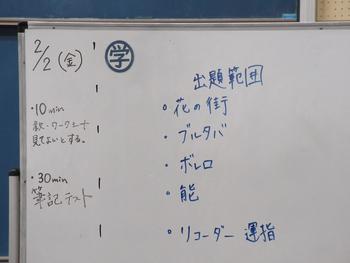 2/2(金)
・10min
教・ワークシート
見てよいとする。
・30min
筆記テスト
学
出題範囲
・花の街
・ブルタバ
・ボレロ
・能
・リコーダー 運指